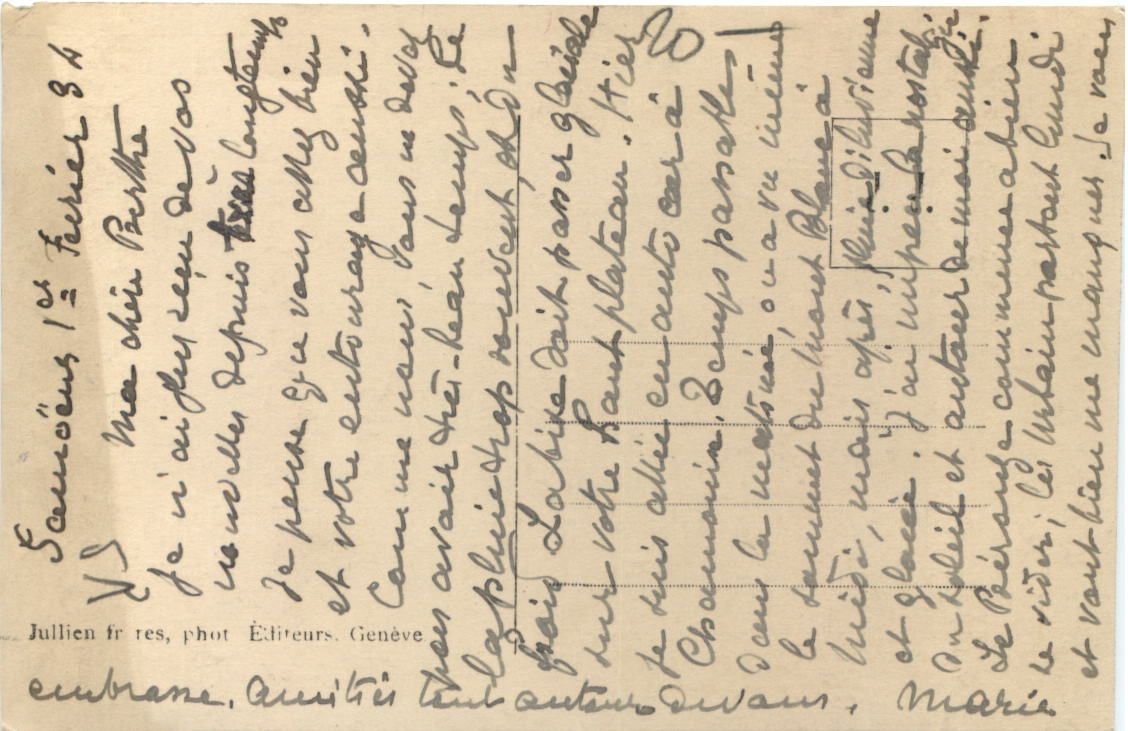 Samoëns 1er Ferier 34
Ma chère Berthe
Je n'ai plus rien de vos
nouvelles depuis longtemps
Je pense que vous allez bien
et votre entourage aussi.
Comme nous, vous ne devez
pas avoir très-beau temps; De
la pluie trop souvent et du
froid La bise doit passer glaciale
sur votre haut plateau. Hier
je suis allée en auto car à 20
Chamonix. Temps passable
dans la matinée, on a vu même
le sommet du Mont Blanc à
midi, mais après, pluie diluvienne
et glacée. J'ai un peu la nostalgie
du soleil et autour de moi aussi
Le Bérouze commence à bien
se vider; les Urbain partent lundi
et vont bien me manquer. Je vous
embrasse. Amitiés tout autour de vous. Marie
Jullien fr res, phot Éditeurs. Genève